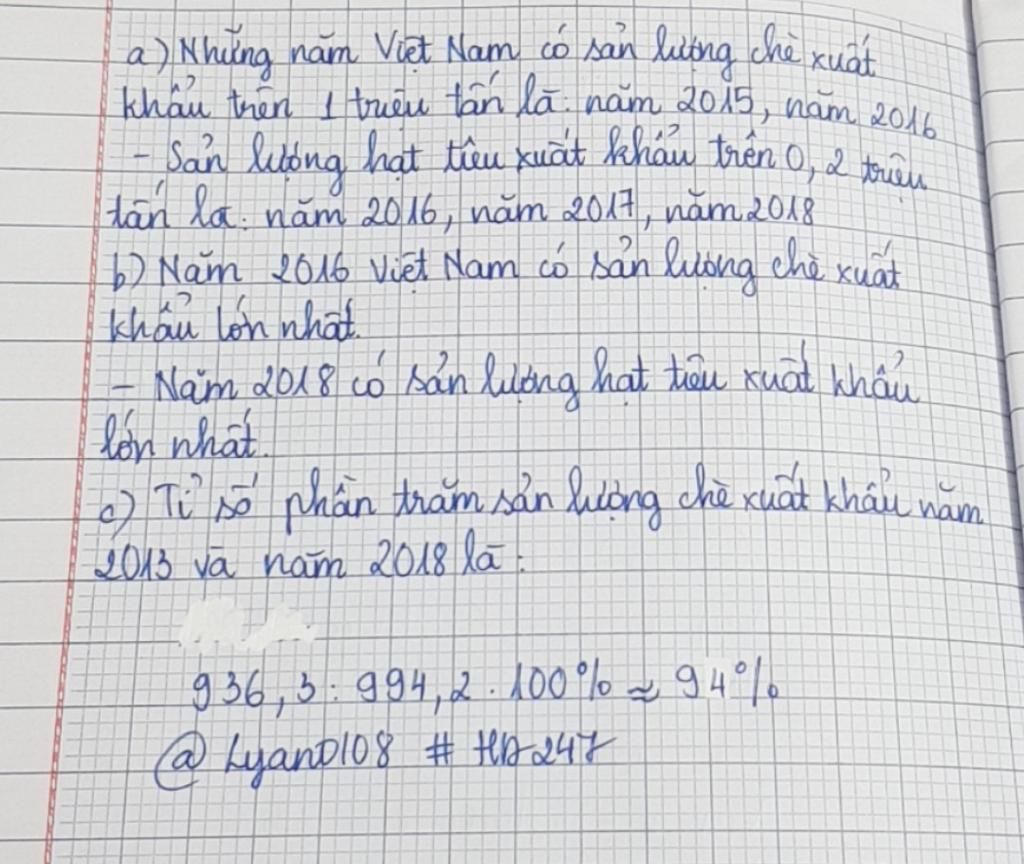 a) Những năm Việt Nam có sản lượng chè xuất
khẩu trên 1 triệu tấn là: năm 2015, năm 2016
- Sản lượng hạt tiêu xuất khẩu trên 0,2 triệu
tấn là: năm 2016, năm 2017, năm 2018
b) Năm 2016 Việt Nam có sản lượng chè xuất
khẩu lớn nhất.
- Năm 2018 có sản lượng hạt tiêu xuất khẩu
lớn nhất.
c) Tỉ số phần trăm sản lượng chè xuất khẩu năm
2013 và năm 2018 là:
936,3 : 994,2 . 100% ≈ 94%
@Lyand108 # HD247